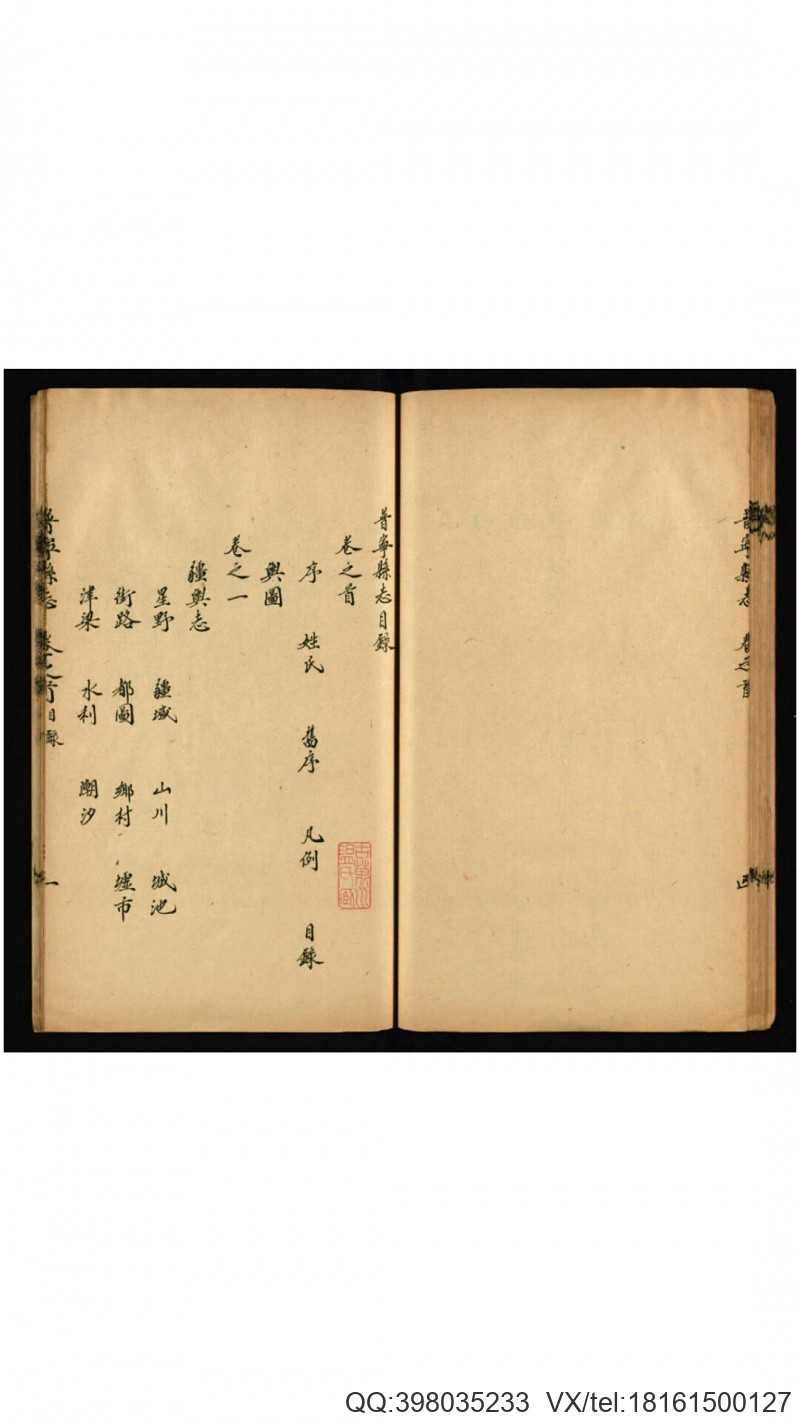 普寧縣志 卷之首
普寧縣志目錄
卷之首
序 姓氏 舊序 凡例 目錄
輿圖
卷之一
疆輿志
星野 疆域 山川 城池
街路 都圖 鄉村 墟市
津梁 水利 潮汐
普寧縣志 卷之首 目錄 一
QQ:398035233 VX/tel:18161500127